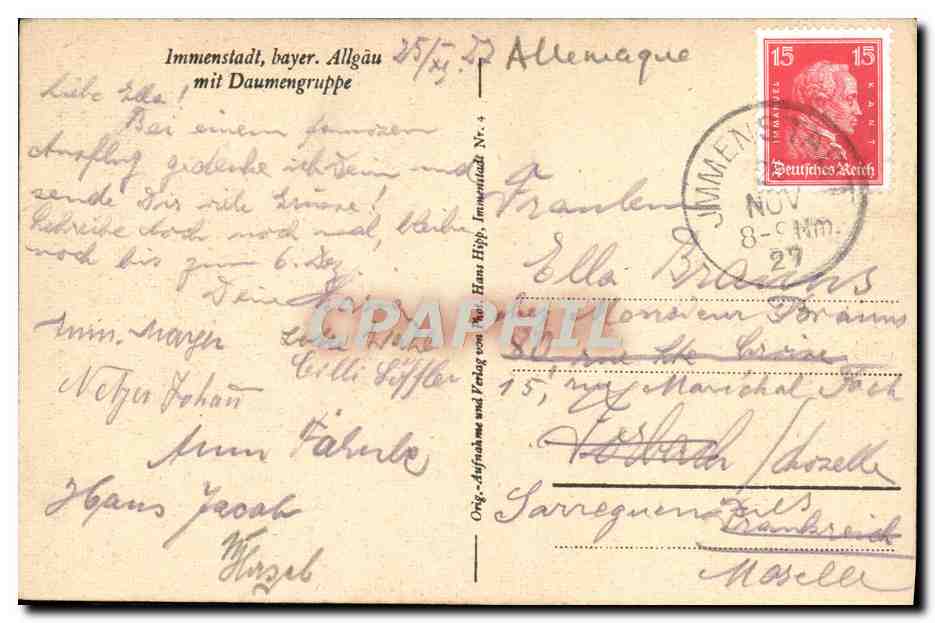 Immenstadt, bayer. Allgäu
mit Daumengruppe
25/XI. 27
Liebe Ella!
Bei einem famosen
Ausflug gedenke ich Dein und
sende Dir viele Grüsse!
Schreibe doch noch mal, bleibe
noch bis zum 6. Dez.
Deine
Anni Mayer
Cilli Löffler
Netzer Johan̄
Hans Jacob
Orig.-Aufnahme und Verlag von Phot. Hans Hipp, Immenstadt Nr. 4
CPAPHIL
Allemagne
15 15
IMMANUEL KANT
Deutsches Reich
IMMENSTADT
NOV
8-9 Nm.
27
Fräulein
Ella Brauns
bei Monsieur Brauns
80 rue Ste Croix
15, rue Maréchal Foch
Forbach / Moselle
Sarreguemines
Frankreich
Moselle